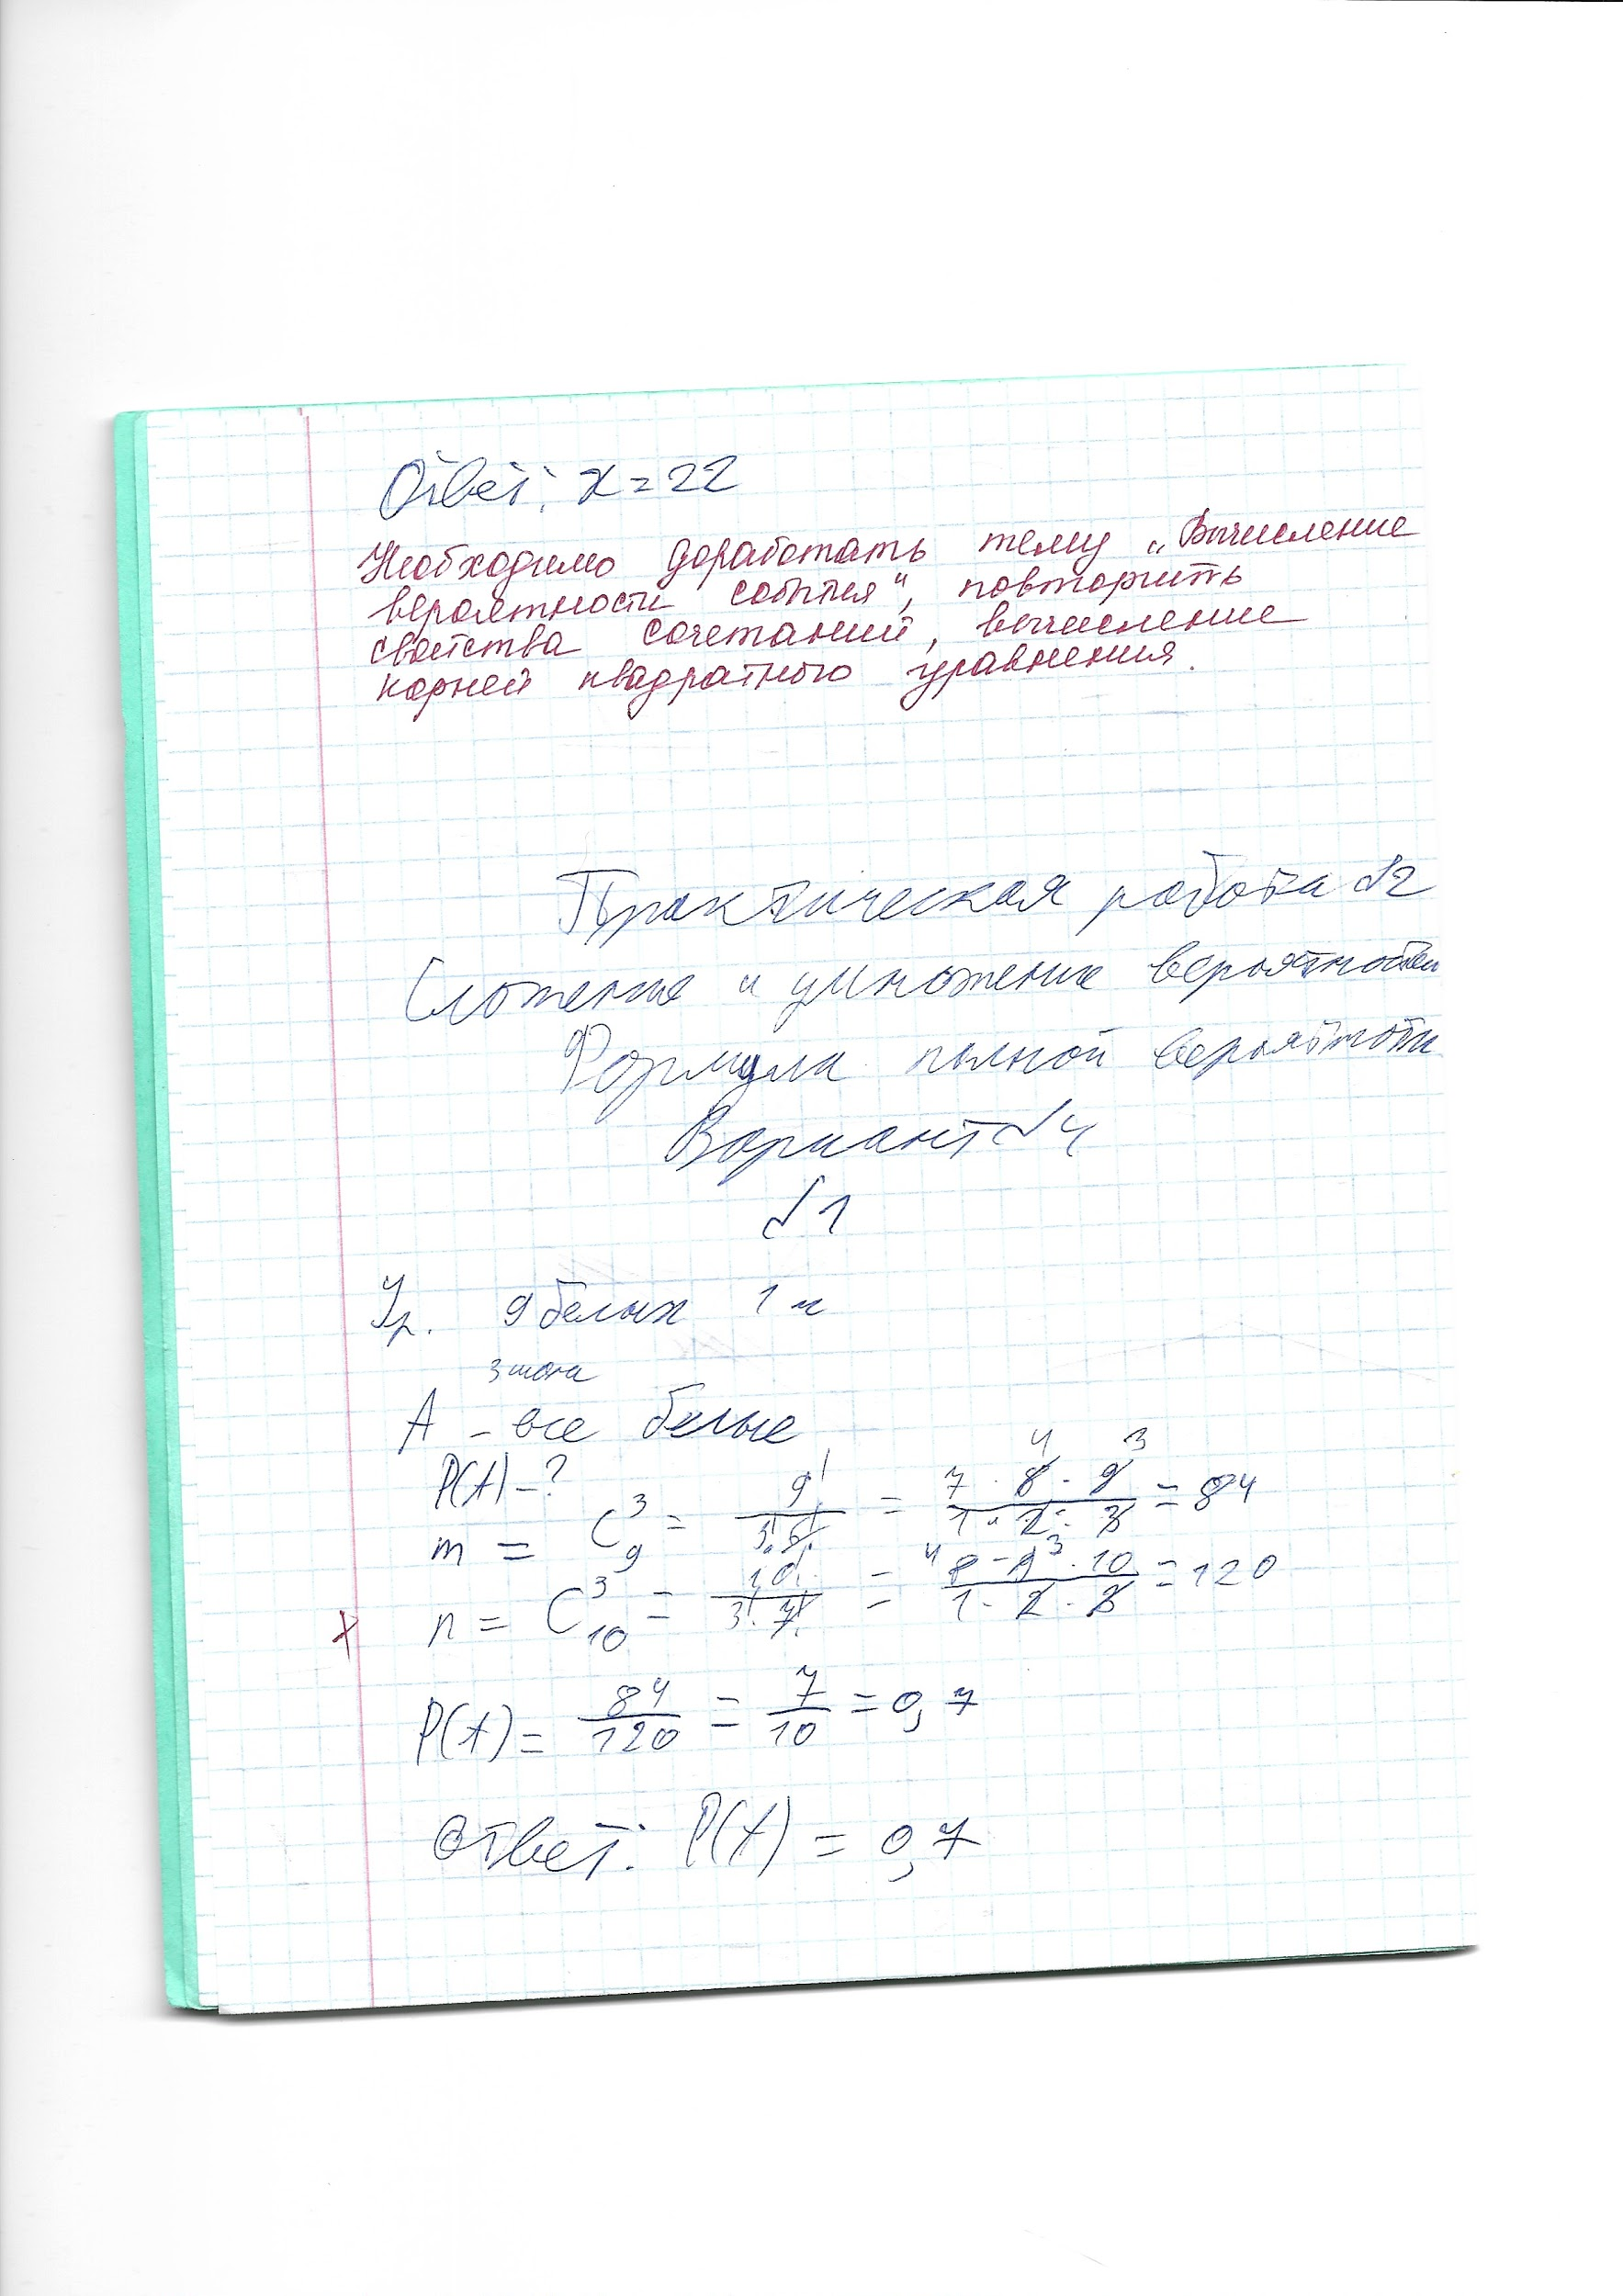 Ответ: x = 22
Необходимо доработать тему „Вычисление
вероятности события", повторить
свойства сочетаний, вычисление
корней квадратного уравнения.
Практическая работа №2
Сложение и умножение вероятностей
Формула полной вероятности
Вариант №4
№1
Ур. 9 белых 1 ч
3 шара
A - все белые
P(A) - ?
m = C₉³ = 9!/(3!·6!) = (7·8·9)/(1·2·3) = 84
n = C₁₀³ = 10!/(3!·7!) = (8·9·10)/(1·2·3) = 120
P(A) = 84/120 = 7/10 = 0,7
Ответ: P(A) = 0,7